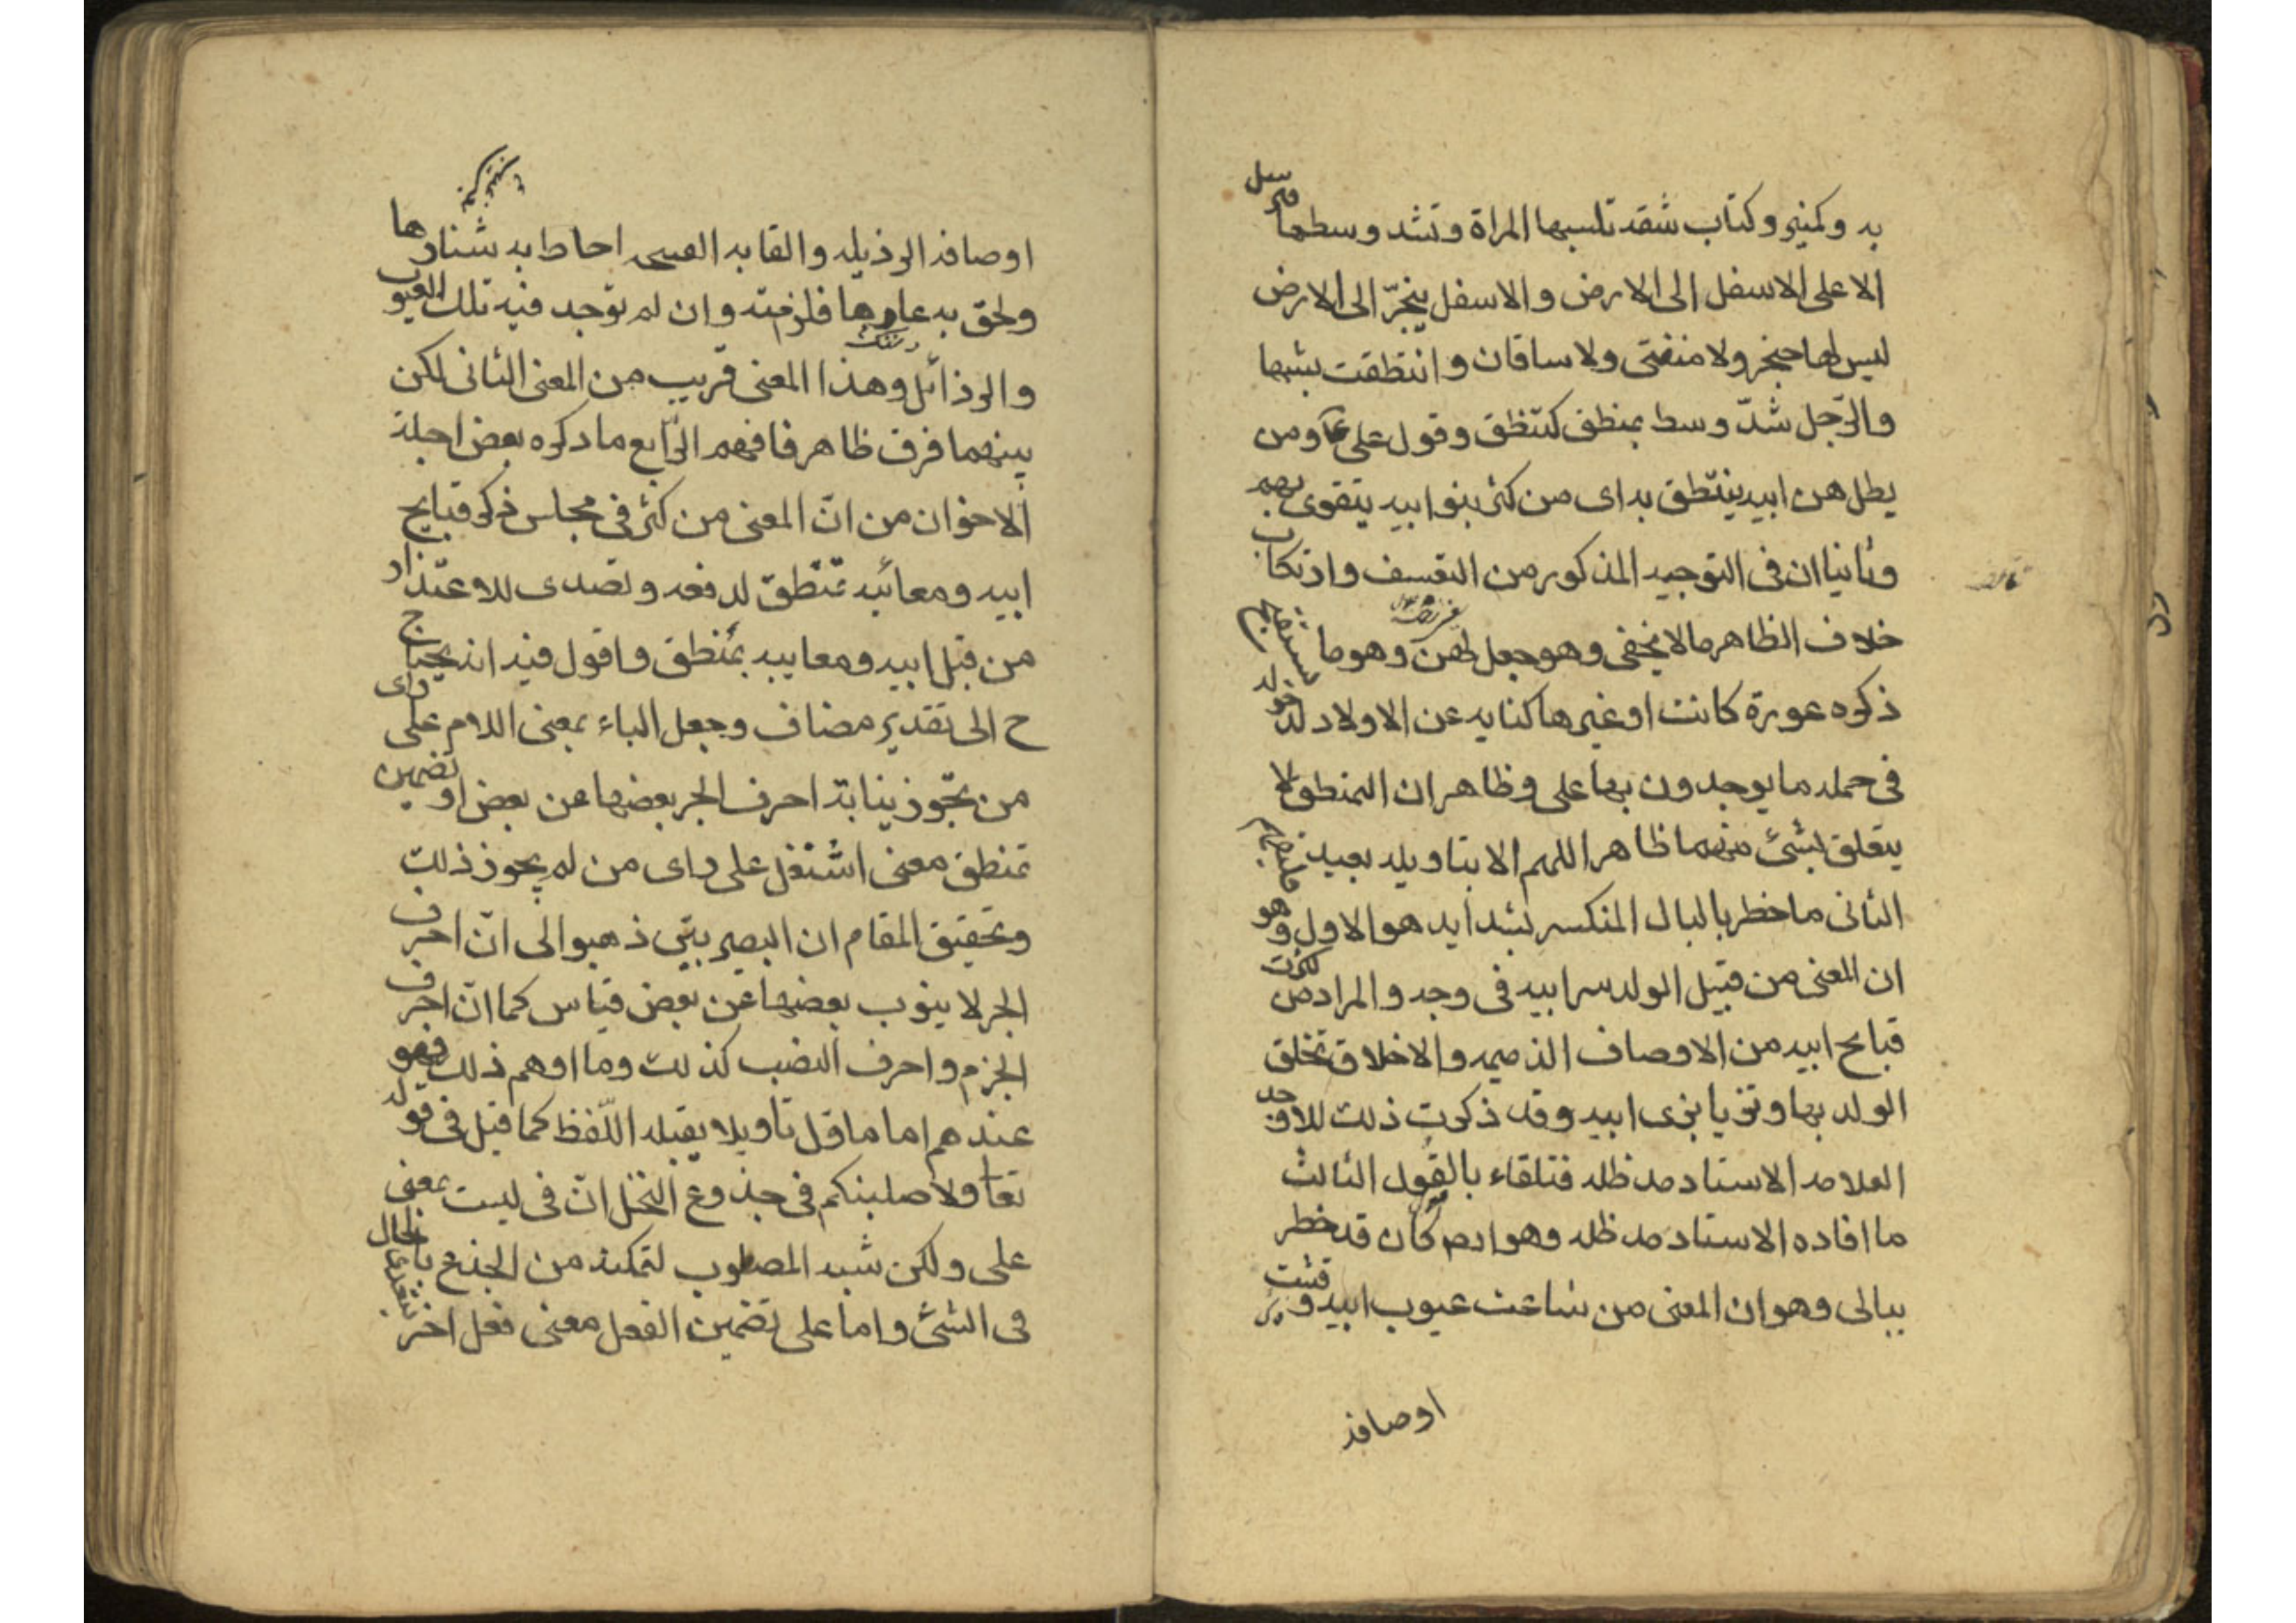 به وكمنبر وكتاب شقه تلبسها المراة وتشد وسطها فترسل
الاعلى الاسفل الى الارض والاسفل ينجرّ الى الارض
ليس لها حجز ولا منفق ولا ساقان وانتطقت لبسها
والرّجل شدّ وسط بمنطق كتنطق وقول على ومن
يطل هن ابيه ينتطق به اى من كثر بنو ابيه يتقوى بهم
وثانيا ان فى التوجيه المذكور من التعسف وارتكاب
خلاف الظاهر ما لا يخفى وهو جعل لهن وهو ما
ذكره عورة كانت او غيرها كنايه عن الاولاد له
فى حمله ما يوجدون بها على وظاهر ان التمنطق لا
يتعلق بشئ منهما ظاهرا اللهم الا بتاويله بعيد
الثانى ما خطر بالبال المنكسر بشدايد هو الاول وهو
ان المعنى من قبيل الولد سر ابيه فى وجه والمراد من كثرت
قبايح ابيه من الاوصاف الذميمه والاخلاق تخلق
الولد بها وتزيا بزى ابيه وقد ذكرت ذلك للاوحد
العلامه الاستاد مد ظله فتلقاء بالقبول الثالث
ما افاده الاستاد مد ظله وهو كان قد خطر
ببالى وهو ان المعنى من شاعت عيوب ابيه وفشت
اوصافه
اوصافه الرذيله والقابه القبيحه احاط به شنارها
ولحق به عارها فلزمته وان لم توجد فيه تلك العيوب
والرذائل وهذا المعنى قريب من المعنى الثانى لكن
بينهما فرق ظاهر فافهم الرّابع ما ذكره بعض اجلة
الاخوان من انّ المعنى من كثر فى مجلس ذكر قبايح
ابيه ومعائبه تمنطق لدفعه وتصدى للاعتذار
من قبل ابيه ومعايبه بمنطق واقول فيه انه يحتاج
ح الى تقدير مضاف وجعل الباء بمعنى اللام على راى
من يجّوز نيابة احرف الجر بعضها عن بعض او تضمين
تمنطق معنى اشتغل على راى من لم يجوز ذلك
وتحقيق المقام ان البصريين ذهبوا الى انّ احرف
الجر لا ينوب بعضها عن بعض قياس كما انّ احرف
الجزم واحرف النصب كذلك وما اوهم ذلك فهو
عندهم اما ماول تاويلا يقبله اللّفظ كما قيل فى قوله
تعا ولاصلبنكم فى جذوع النخل انّ فى ليست بمعنى
على ولكن شبه المصلوب لتمكنه من الجذع بالحال
فى الشئ واما على تضمين الفعل معنى فعل اخر